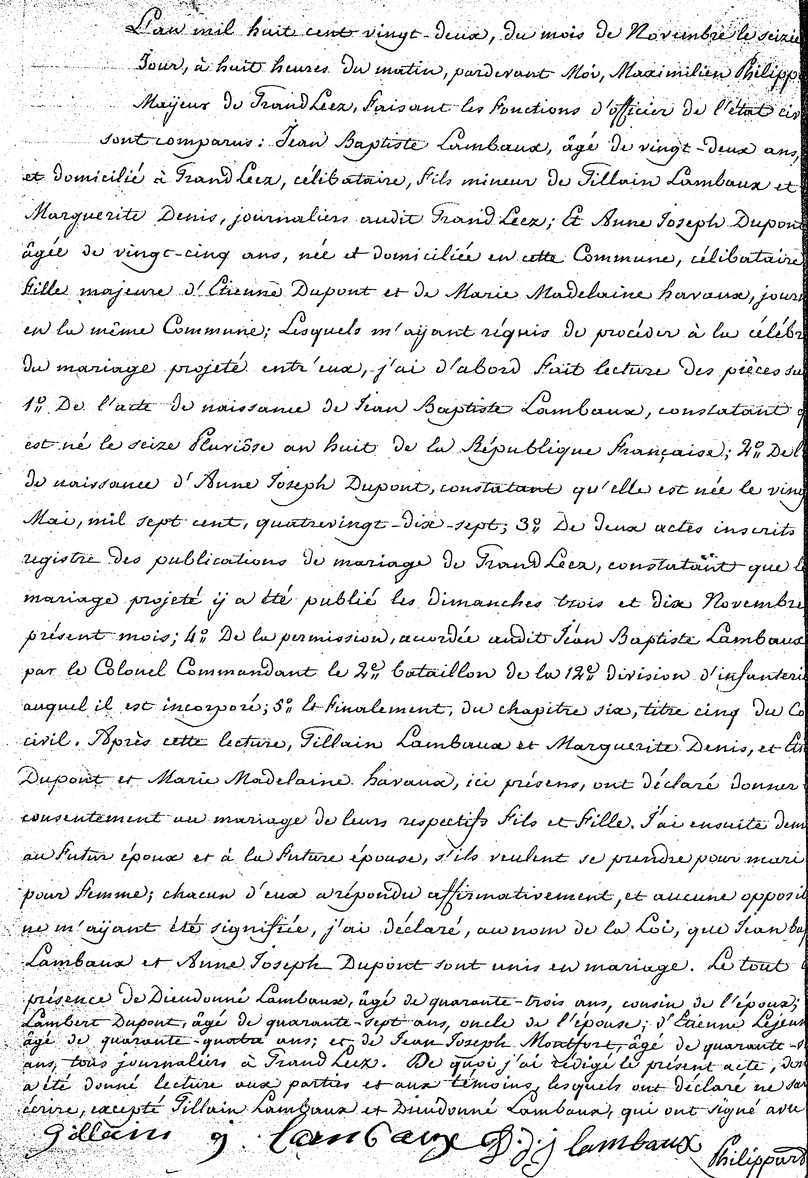 L'an mil huit cent vingt-deux, du mois de Novembre le seizie
Jour, à huit heures du matin, pardevant Moi, Maximilien Philipp
Maÿeur de Grand Leez, faisant les fonctions d'officier de l'état civ
sont comparus: Jean Baptiste Lambaux, âgé de vingt-deux ans,
et domicilié à Grand Leez, célibataire, fils mineur de Gillain Lambaux et
Marguerite Denis, journaliers audit Grand Leez; Et Anne Joseph Dupont
âgée de vingt-cinq ans, née et domiciliée en cette Commune, célibataire
fille majeure d'Etienne Dupont et de Marie Madelaine havaux, jour
en la même Commune; Lesquels m'aÿant réquis de procéder à la célébr
du mariage projeté entr'eux, j'ai d'abord fait lecture des pièces su
1º De l'acte de naissance de Jean Baptiste Lambaux, constatant q
est né le seize Pluviôse an huit de la République Française; 2º De l'
de naissance d'Anne Joseph Dupont, constatant qu'elle est née le ving
Mai, mil sept cent, quatrevingt-dix-sept; 3º De deux actes inscrits
registre des publications de mariage de Grand Leez, constatant que l
mariage projeté ÿ a été publié les dimanches trois et dix Novembre
présent mois; 4º De la permission, acordée audit Jean Baptiste Lambaux
par le Colonel Commandant le 2e bataillon de la 12e division d'infanteri
auquel il est incorporé; 5º Et finalement, du chapitre six, titre cinq du Co
civil. Après cette lecture, Gillain Lambaux et Marguerite Denis, et Eti
Dupont et Marie Madelaine havaux, ici présens, ont déclaré donner
consentement au mariage de leurs respectifs fils et fille. J'ai ensuite dem
au futur époux et à la future épouse, s'ils veulent se prendre pour mari
pour femme; chacun d'eux a répondu affirmativement, et aucune opposit
ne m'aÿant été signifiée, j'ai déclaré, au nom de la Loi, que Jean Bap
Lambaux et Anne Joseph Dupont sont unis en mariage. Le tout
présence de Dieudonné Lambaux, âgé de quarante-trois ans, cousin de l'époux;
Lambert Dupont, âgé de quarante-sept ans, oncle de l'épouse; d'Etienne Lejeun
âgé de quarante-quatre ans; et de Jean Joseph Montfort, âgé de quarante-s
ans, tous journaliers à Grand Leez. De quoi j'ai rédigé le présent acte, don
a été donné lecture aux parties et aux témoins, lesquels ont déclaré ne sav
écrire, excepté Gillain Lambaux et Dieudonné Lambaux, qui ont signé avec
gillain j lambaux D.j.j lambaux
Philippard